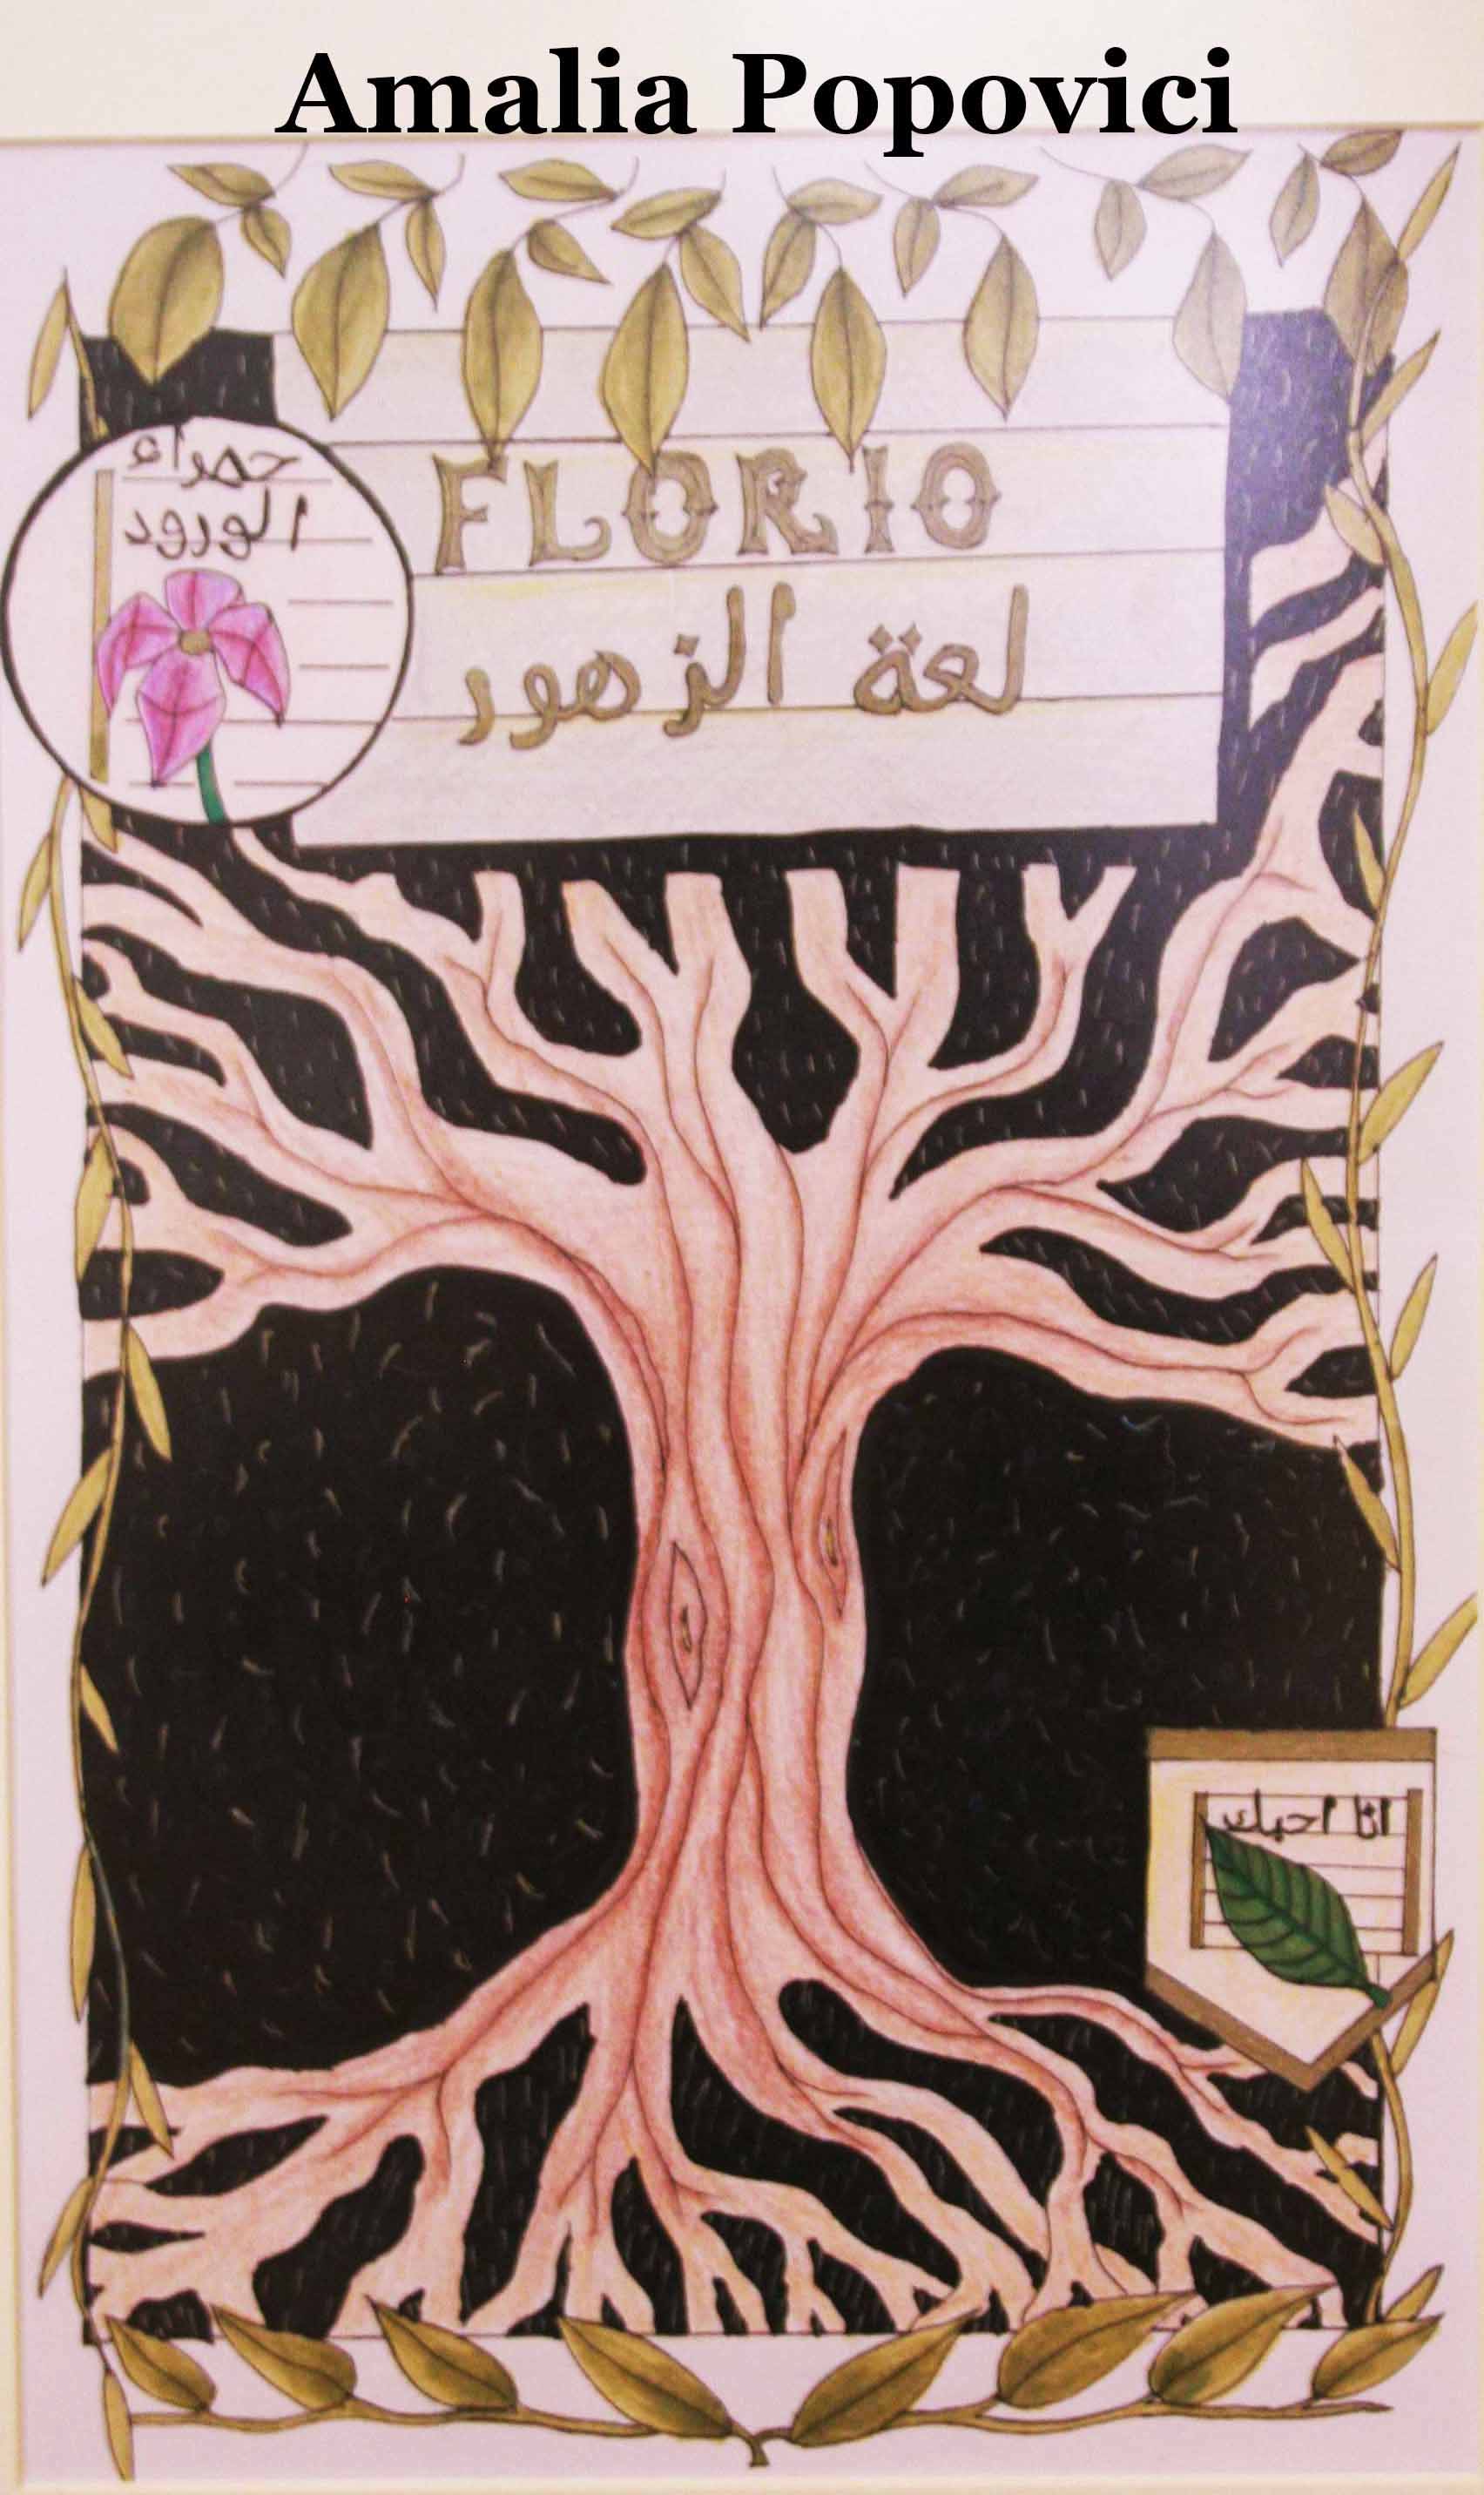 Amalia Popovici
حمراء
الورود
FLORIO
لغة الزهور
انا احبك